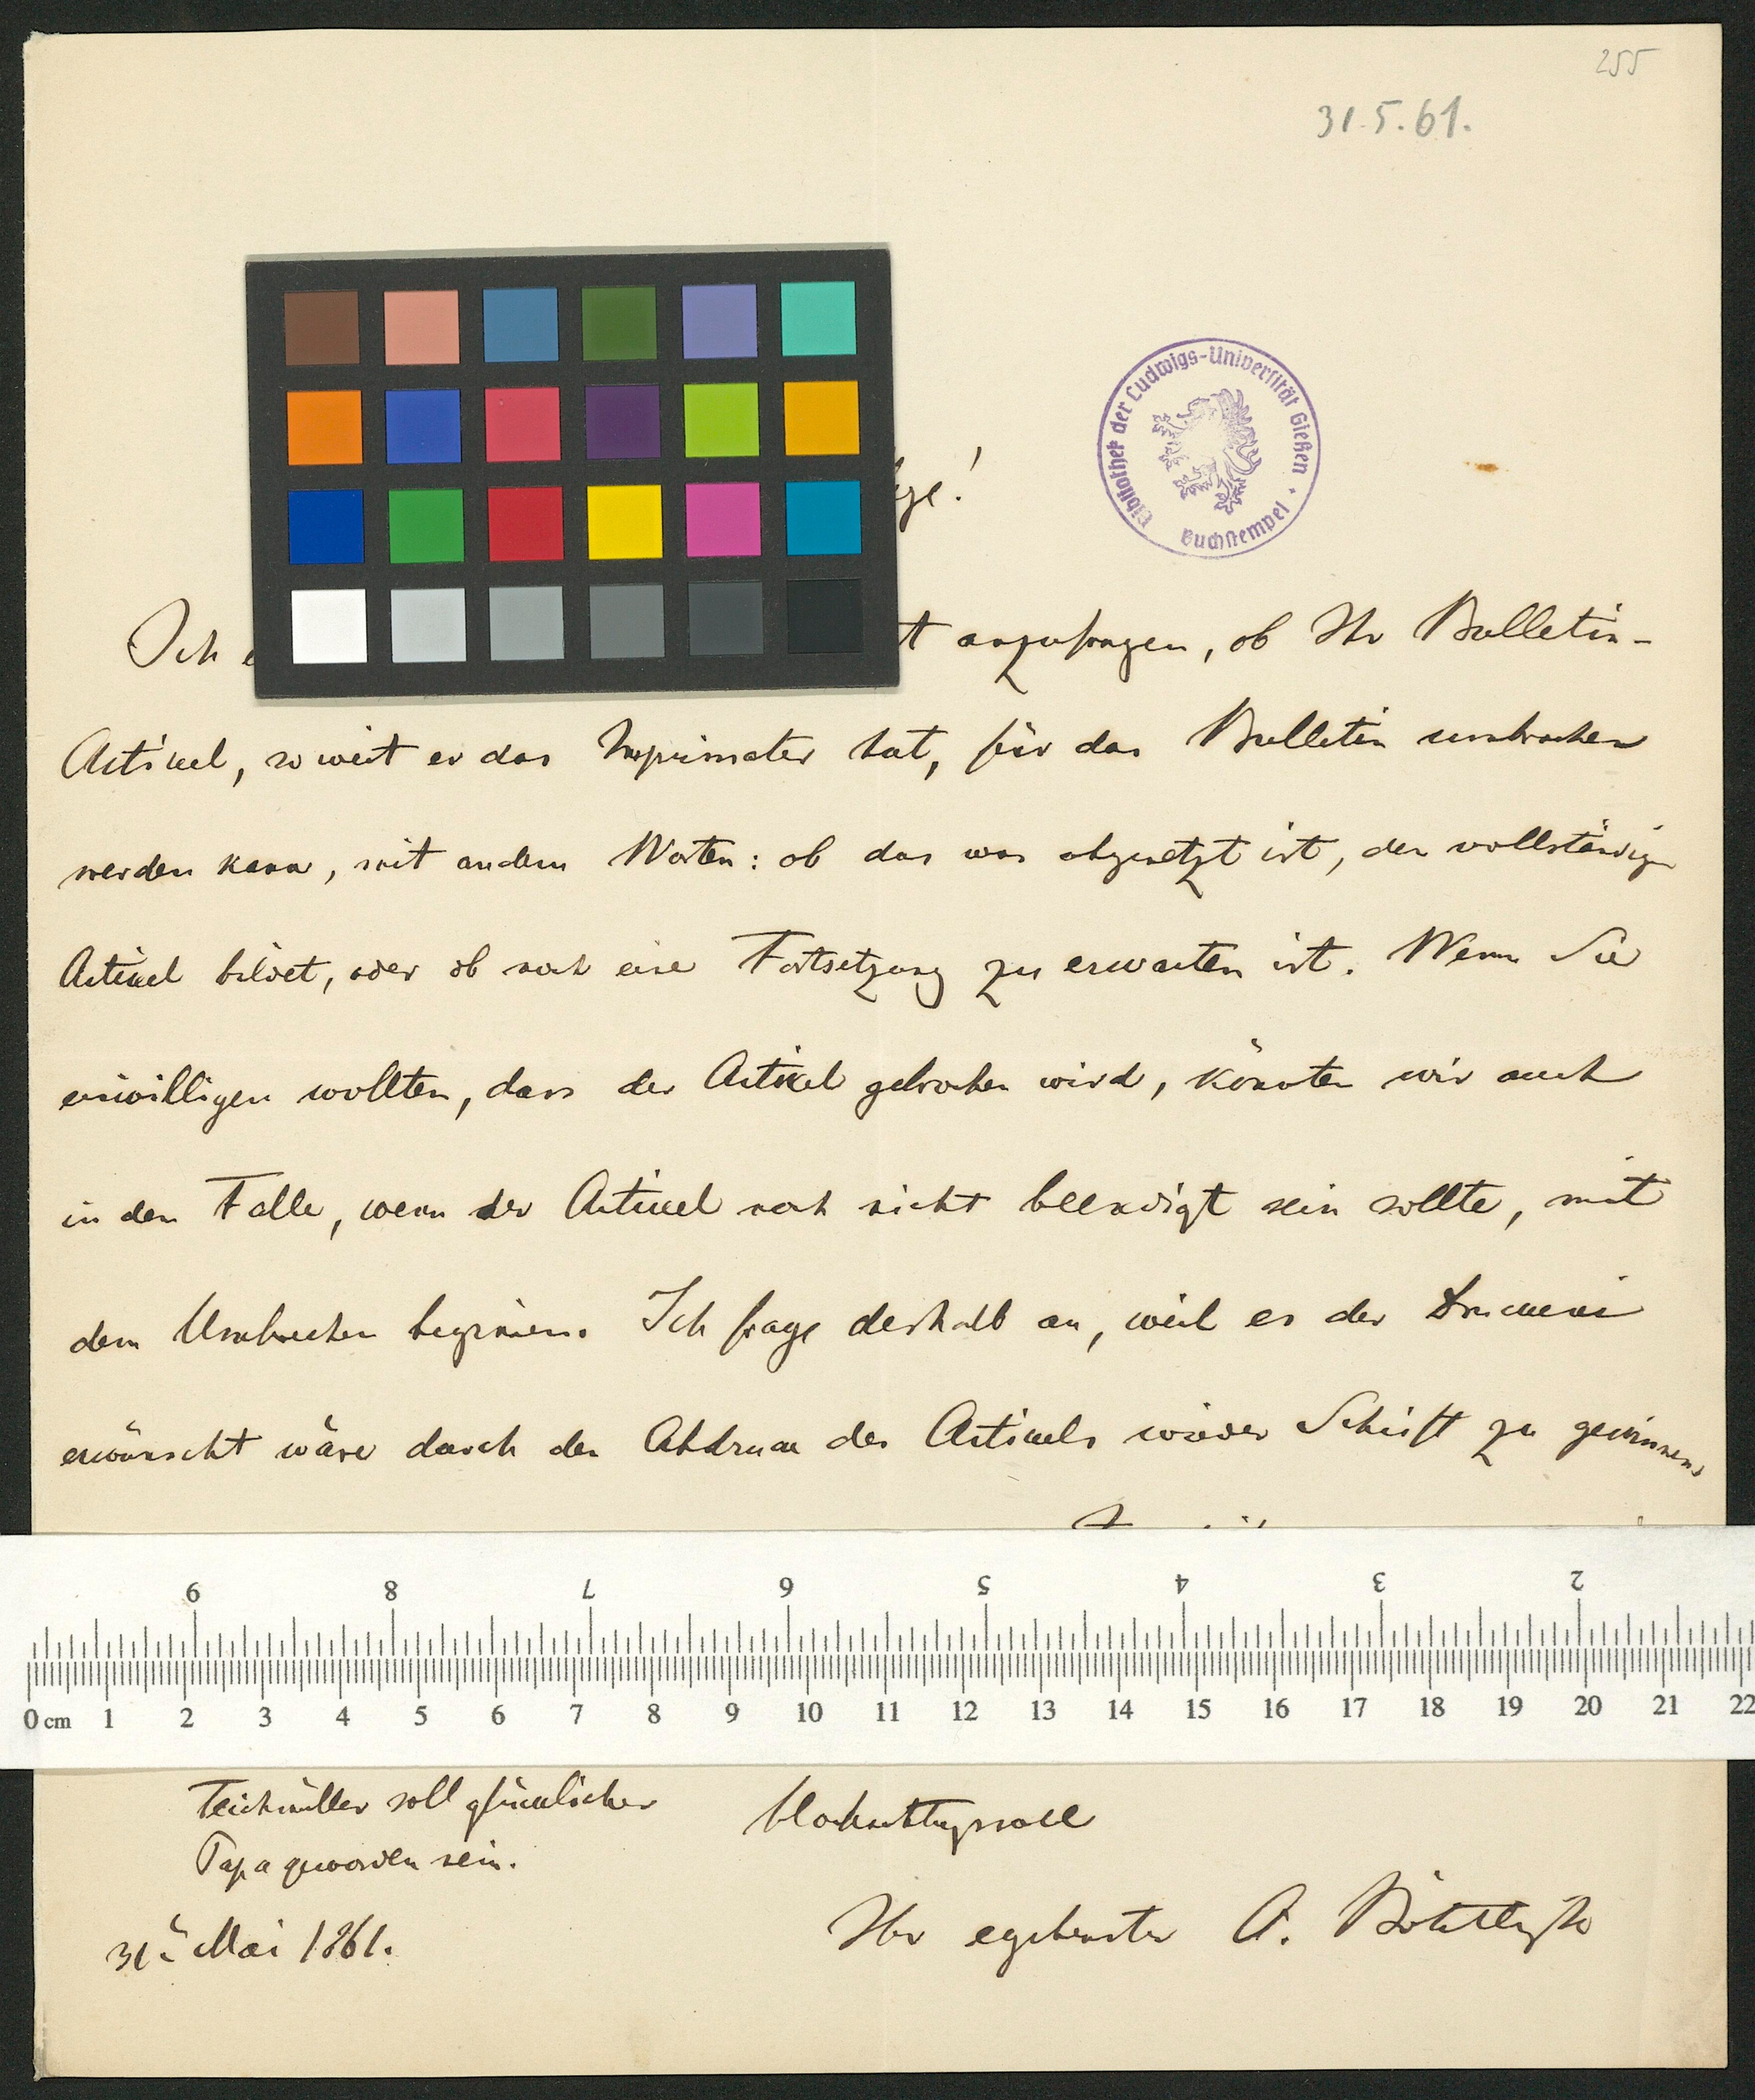 255
31.5.61.
Bibliothek der Ludwigs-Universität Gießen
Buchstempel
Ich
anzufragen, ob Ihr Bulletin-
Artikel, so weit er das Imprimatur hat, für das Bulletin umbrochen
werden kann, mit andern Worten: ob das was abgesetzt ist, den vollständigen
Artikel bildet, oder ob noch eine Fortsetzung zu erwarten ist. Wenn Sie
einwilligen wollten, dass der Artikel gebrochen wird, könnten wir auch
in dem Falle, wenn der Artikel noch nicht beendigt sein sollte, mit
dem Umbrechen beginnen. Ich frage deshalb an, weil es der Druckerei
erwünscht wäre durch den Abdruck des Artikels wieder Schrift zu gewinnen.
9 8 7 6 5 4 3 2
0 cm 1 2 3 4 5 6 7 8 9 10 11 12 13 14 15 16 17 18 19 20 21 22
Teichmüller soll glücklicher
Papa geworden sein.
Hochachtungsvoll
Ihr ergebenster O. Böhtlingk
31 Mai 1861.